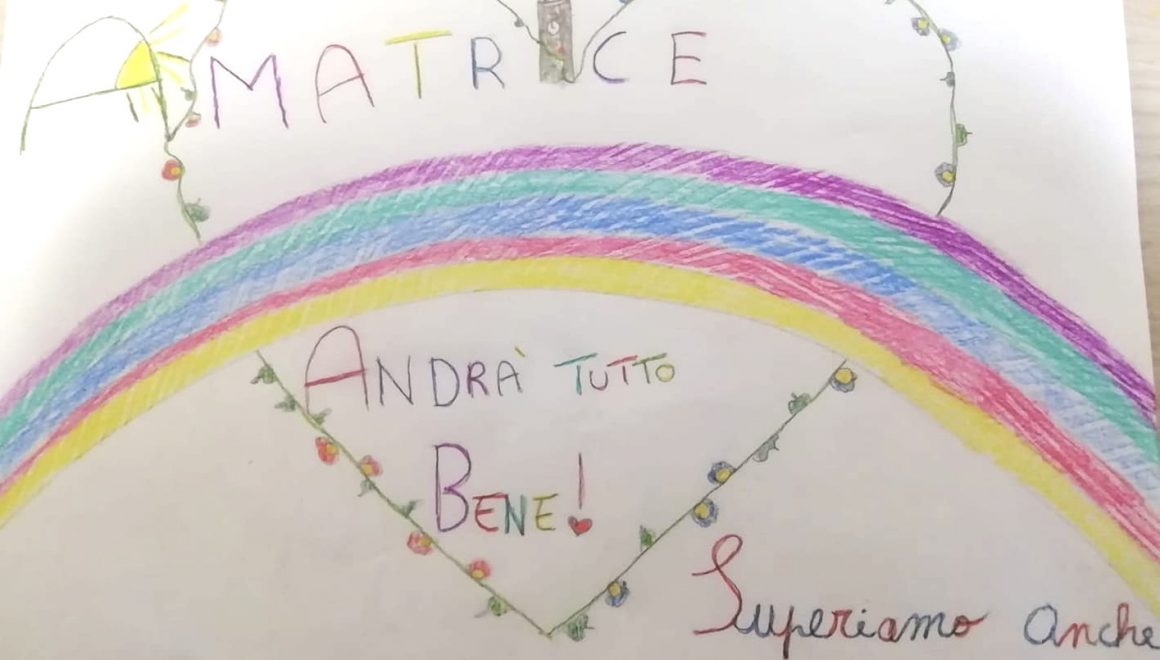 AMATRICE
ANDRÀ TUTTO
BENE!
Superiamo anche